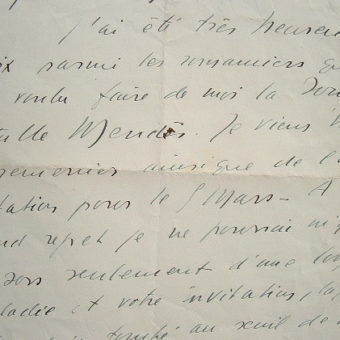 j'ai été très heureu
parmi les romanciers qu
voulu faire de moi la
Mendès. Je viens v
ainsi que de l'
tation pour le 5 Mars - A
nd regret je ne pourrai m'y
sors seulement d'une lon
ladie et votre invitation, la
tombé au seuil de